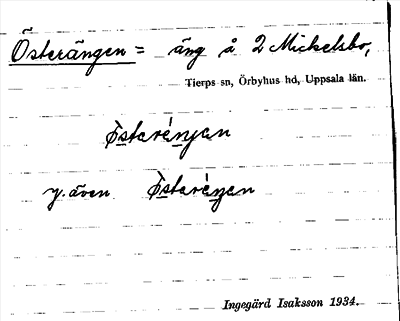 Österängen = äng å 2 Mickelsbo,
Tierps sn, Örbyhus hd, Uppsala län.
ø̀starén̠jan
y. även ø̀staréŋan
Ingegärd Isaksson 1934.